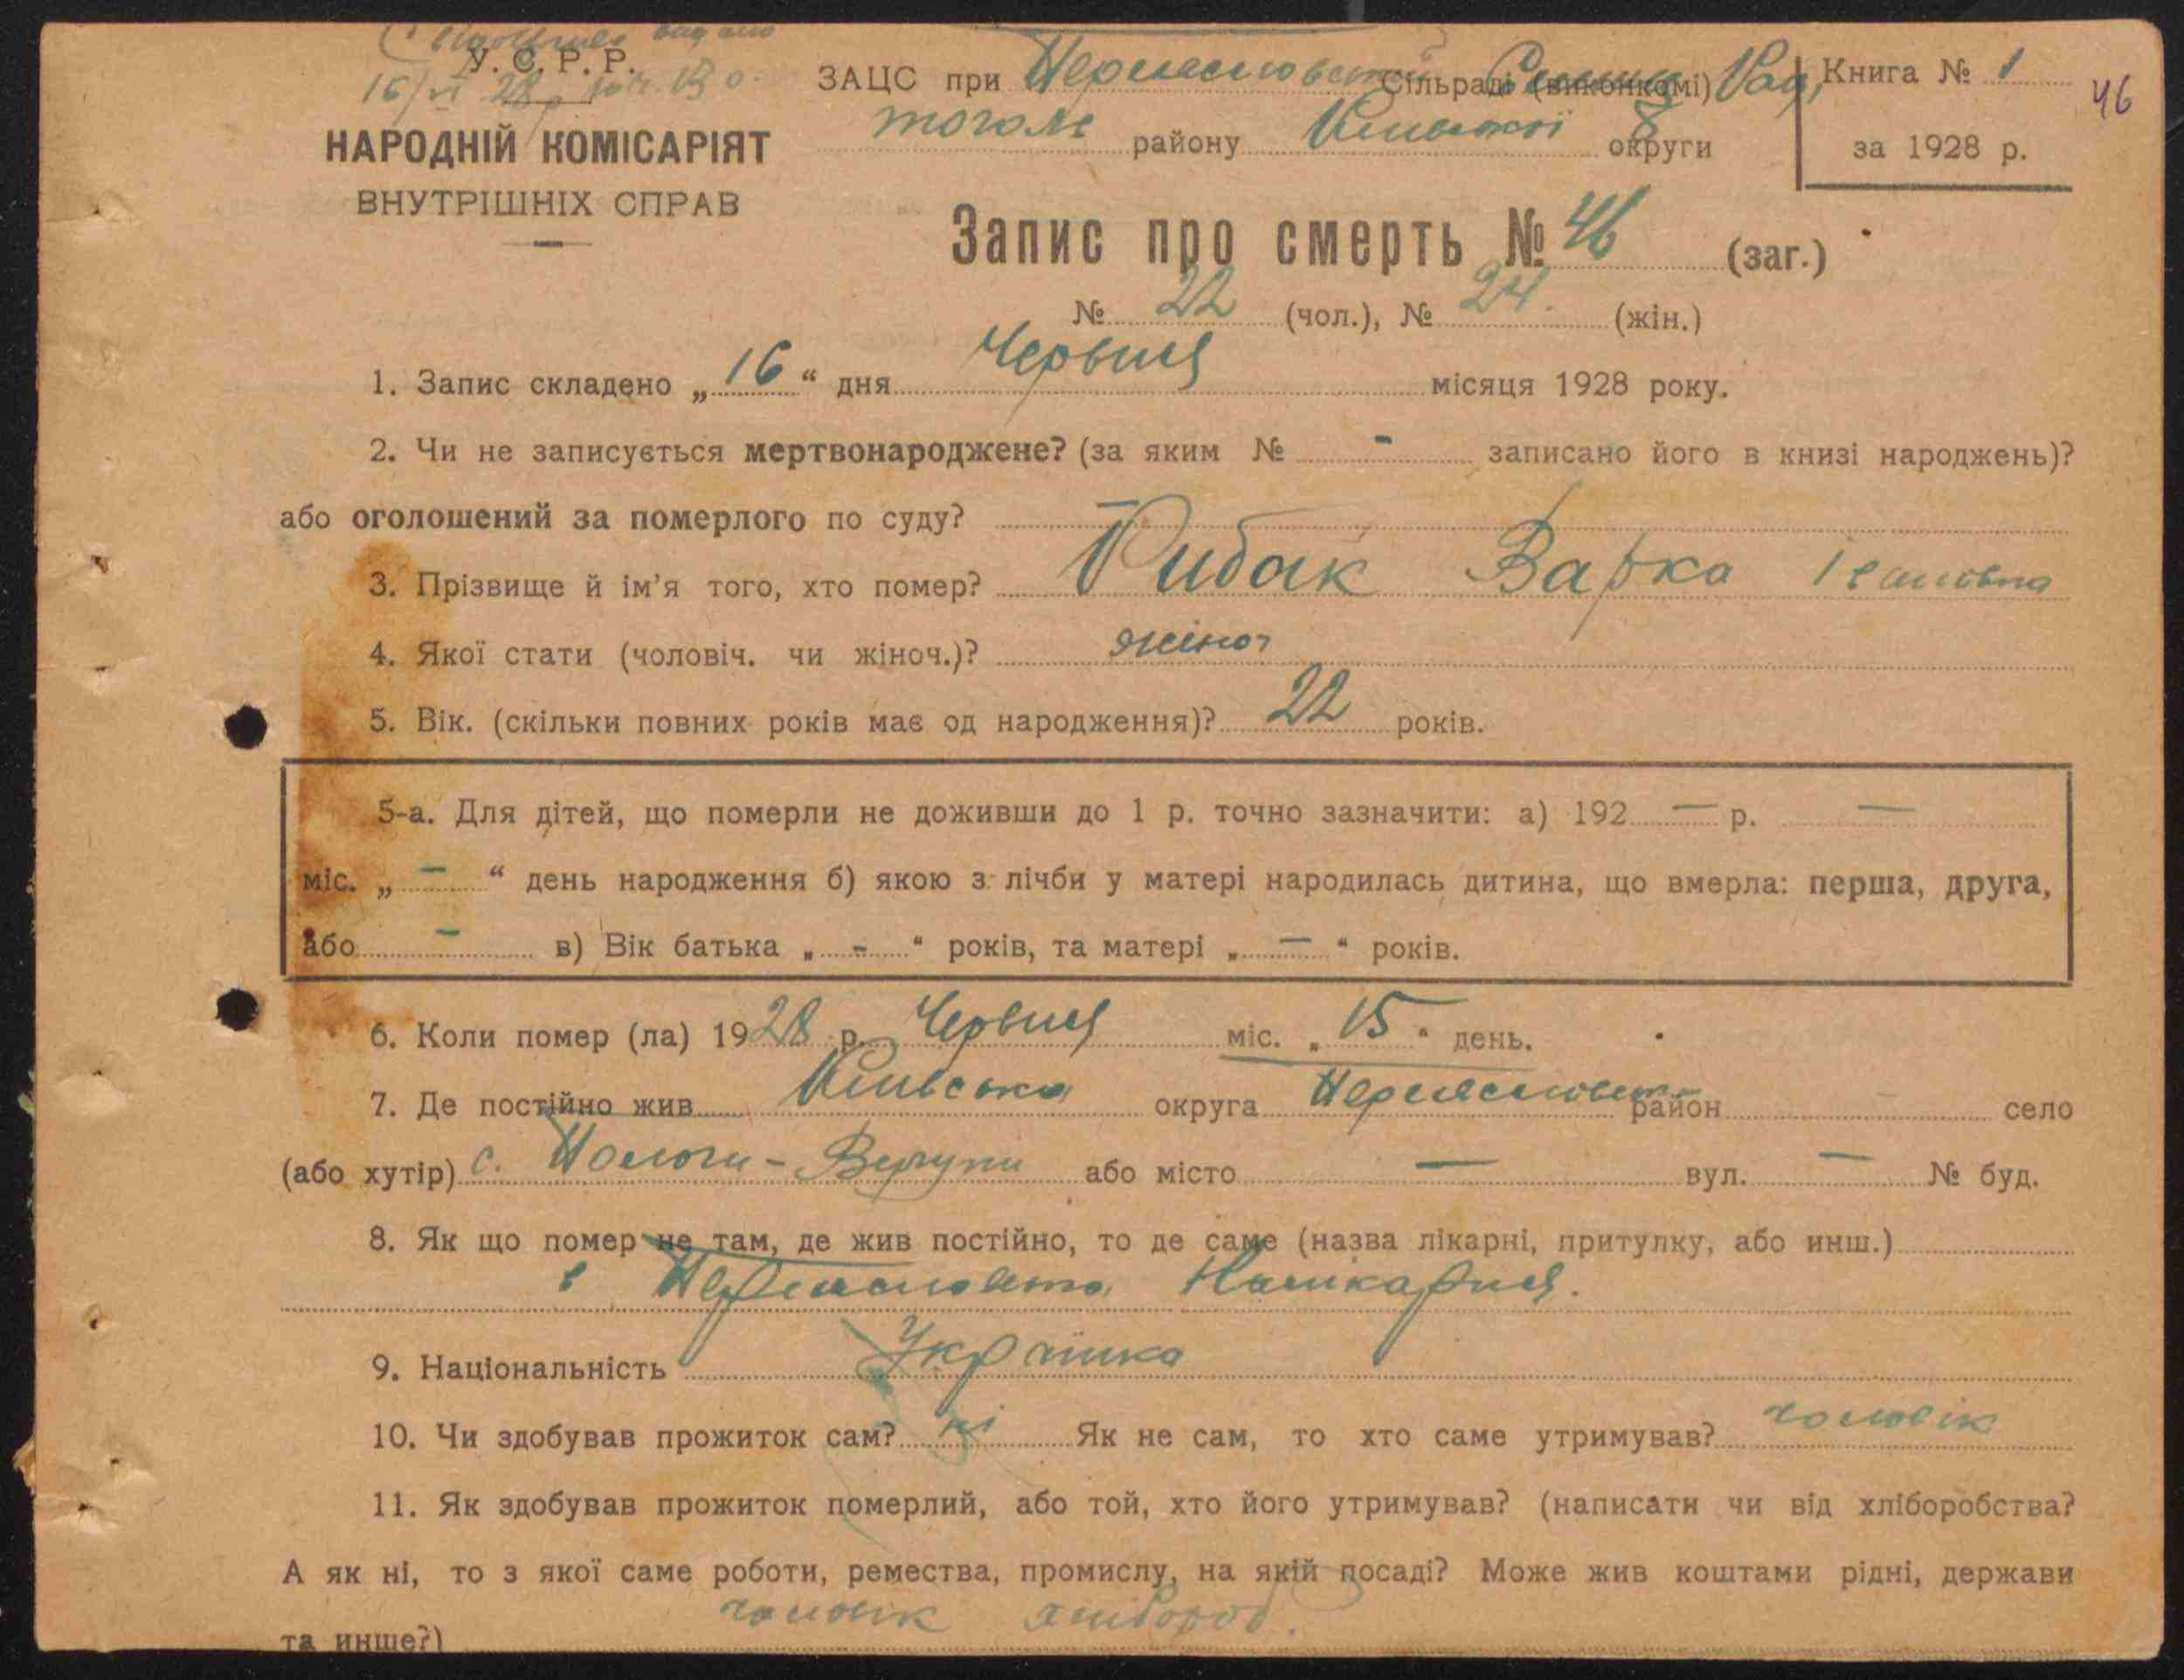 У. С. Р. Р.
НАРОДНІЙ КОМІСАРІЯТ
ВНУТРІШНІХ СПРАВ
ЗАЦС при Переяславській Сільраді (виконкомі)
того ж району Київської округи
Книга № 1
за 1928 р.
46
Запис про смерть № 46 (заг.)
№ 22 (чол.), № 24 (жін.)
1. Запис складено „ 16 “ дня Червня місяця 1928 року.
2. Чи не записується мертвонароджене? (за яким № - записано його в книзі народжень)?
або оголошений за померлого по суду? —
3. Прізвище й ім’я того, хто помер? Рибак Варка
4. Якої стати (чоловіч. чи жіноч.)? жіноч
5. Вік. (скільки повних років має од народження)? 22 років.
5-а. Для дітей, що померли не доживши до 1 р. точно зазначити: а) 192 — р. —
міс. „ — “ день народження б) якою з лічби у матері народилась дитина, що вмерла: перша, друга,
або — в) Вік батька „ - “ років, та матері „ — “ років.
6. Коли помер (ла) 1928 р. Червня міс. „ 15 “ день.
7. Де постійно жив Київська округа Переяславськ район село
(або хутір) с. Пологи-Вергуни або місто — вул. — № буд.
8. Як що помер не там, де жив постійно, то де саме (назва лікарні, притулку, або инш.)
в Переяславська
9. Національність Українка
10. Чи здобував прожиток сам? ні Як не сам, то хто саме утримував? чоловік
11. Як здобував прожиток померлий, або той, хто його утримував? (написати чи від хліборобства?
А як ні, то з якої саме роботи, ремества, промислу, на якій посаді? Може жив коштами рідні, держави
та инше?) чоловік хлібороб.